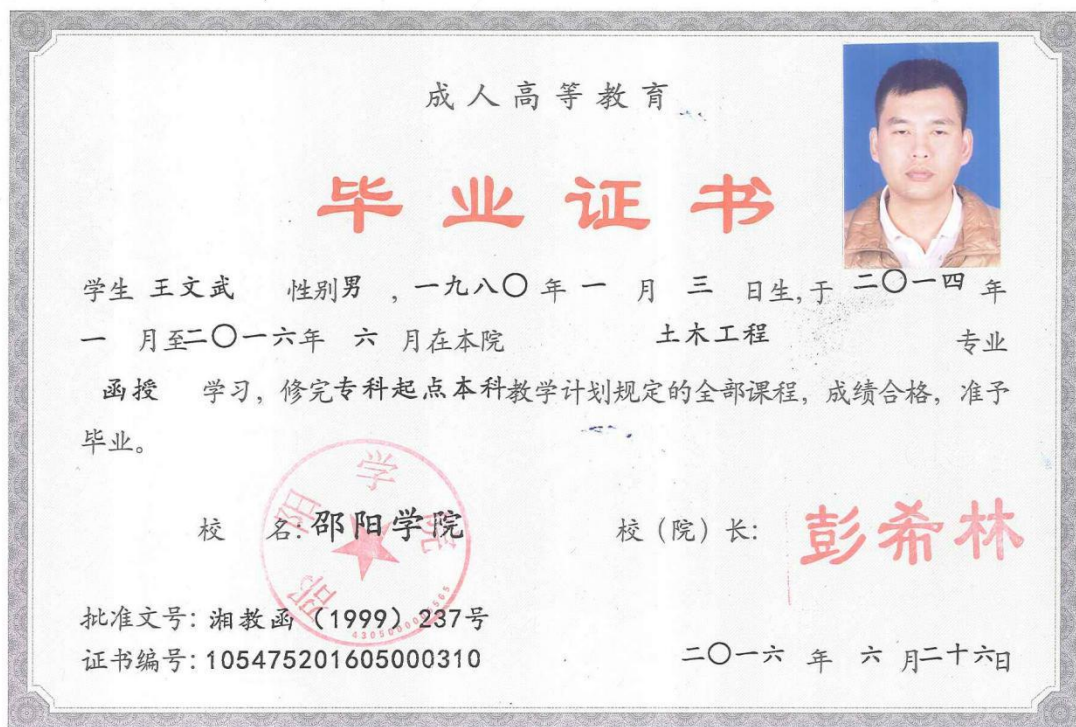 成人高等教育
毕业证书
学生 王文武 性别男 , 一九八〇 年 一 月 三 日生, 于 二〇一四 年
一 月至二〇一六年 六 月在本院 土木工程 专业
函授 学习, 修完专科起点本科教学计划规定的全部课程, 成绩合格, 准予
毕业。
邵阳学院
校 名: 邵阳学院 校（院）长: 彭希林
批准文号: 湘教函（1999）237号
证书编号: 105475201605000310 二〇一六 年 六 月二十六日